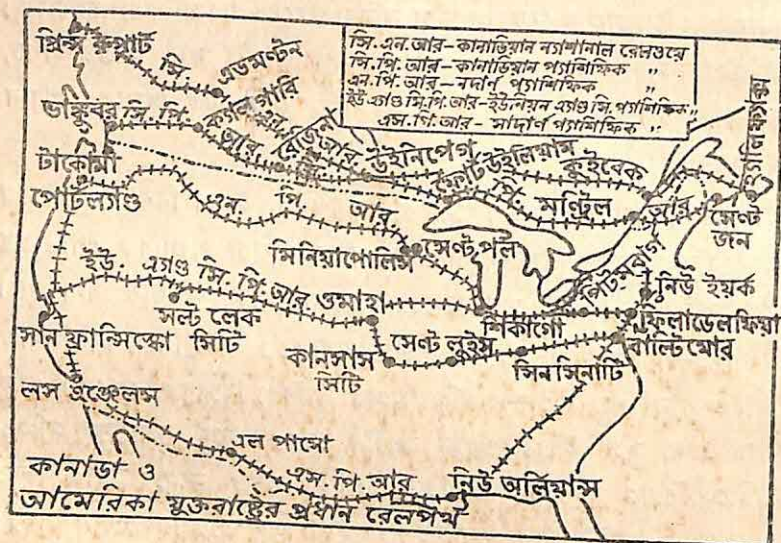 সি.এন.আর-কানাডিয়ান ন্যাশানাল রেলওয়ে
সি.পি.আর-কানাডিয়ান প্যাশিফিক "
এন.পি.আর-নদার্ণ প্যাশিফিক "
ইউ-এণ্ড সি.পি.আর-ইউনিয়ন এণ্ড সি.প্যাশিফিক "
এস.পি.আর-সাদার্ণ প্যাশিফিক "
প্রিন্স রুপার্ট
সি.
এডমণ্টন
ভাঙ্কুবর
সি.পি.
আর.
ক্যালগারি
এন.
রেজিনা
আর.
উইনিপেগ
ফোর্ট উইলিয়াম
কুইবেক
হ্যালিফ্যাক্স
টাকোমা
পোর্টলণ্ড
এন. পি. আর.
সি.
পি.
মন্ট্রিল
আর
সেণ্ট জন
মিনিয়াপোলিস
সেণ্ট পল
পিটসবার্গ
নিউ ইয়র্ক
ইউ. এণ্ড সি.পি.আর.
ওমাহা
শিকাগো
ফিলাডেলফিয়া
সান ফ্রান্সিস্কো
সল্ট লেক সিটি
কানসাস সিটি
সেণ্ট লুইস
সিনসিনাটি
বাল্টিমোর
লস এঞ্জেলস
এল পাসো
এস.পি.আর
নিউ অর্লিয়ান্স
কানাডা ও
আমেরিকা যুক্তরাষ্ট্রের প্রধান রেলপথ